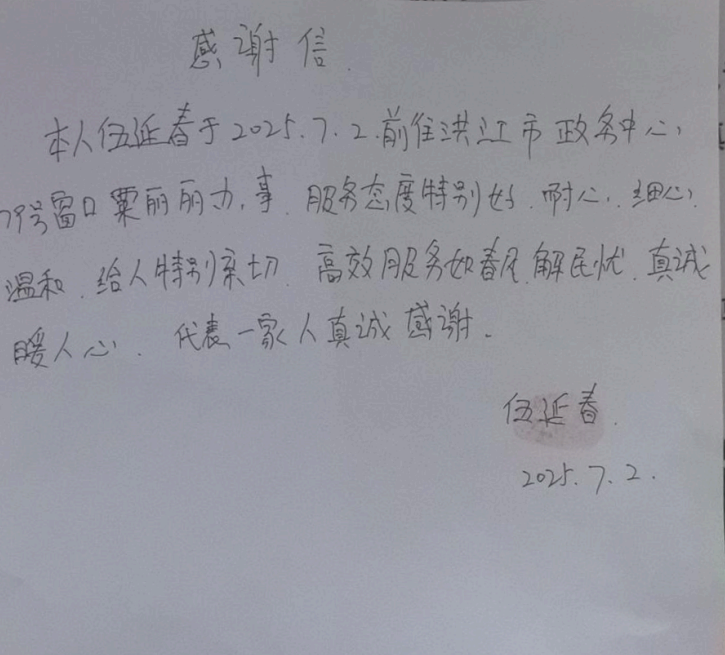 感谢信.
本人伍延春于2025.7.2.前往洪江市政务中心,
79号窗口粟丽丽办事.服务态度特别好.耐心.细心.
温和.给人特别亲切.高效服务如春风.解民忧.真诚
暖人心.代表一家人真诚感谢.
伍延春.
2025.7.2.